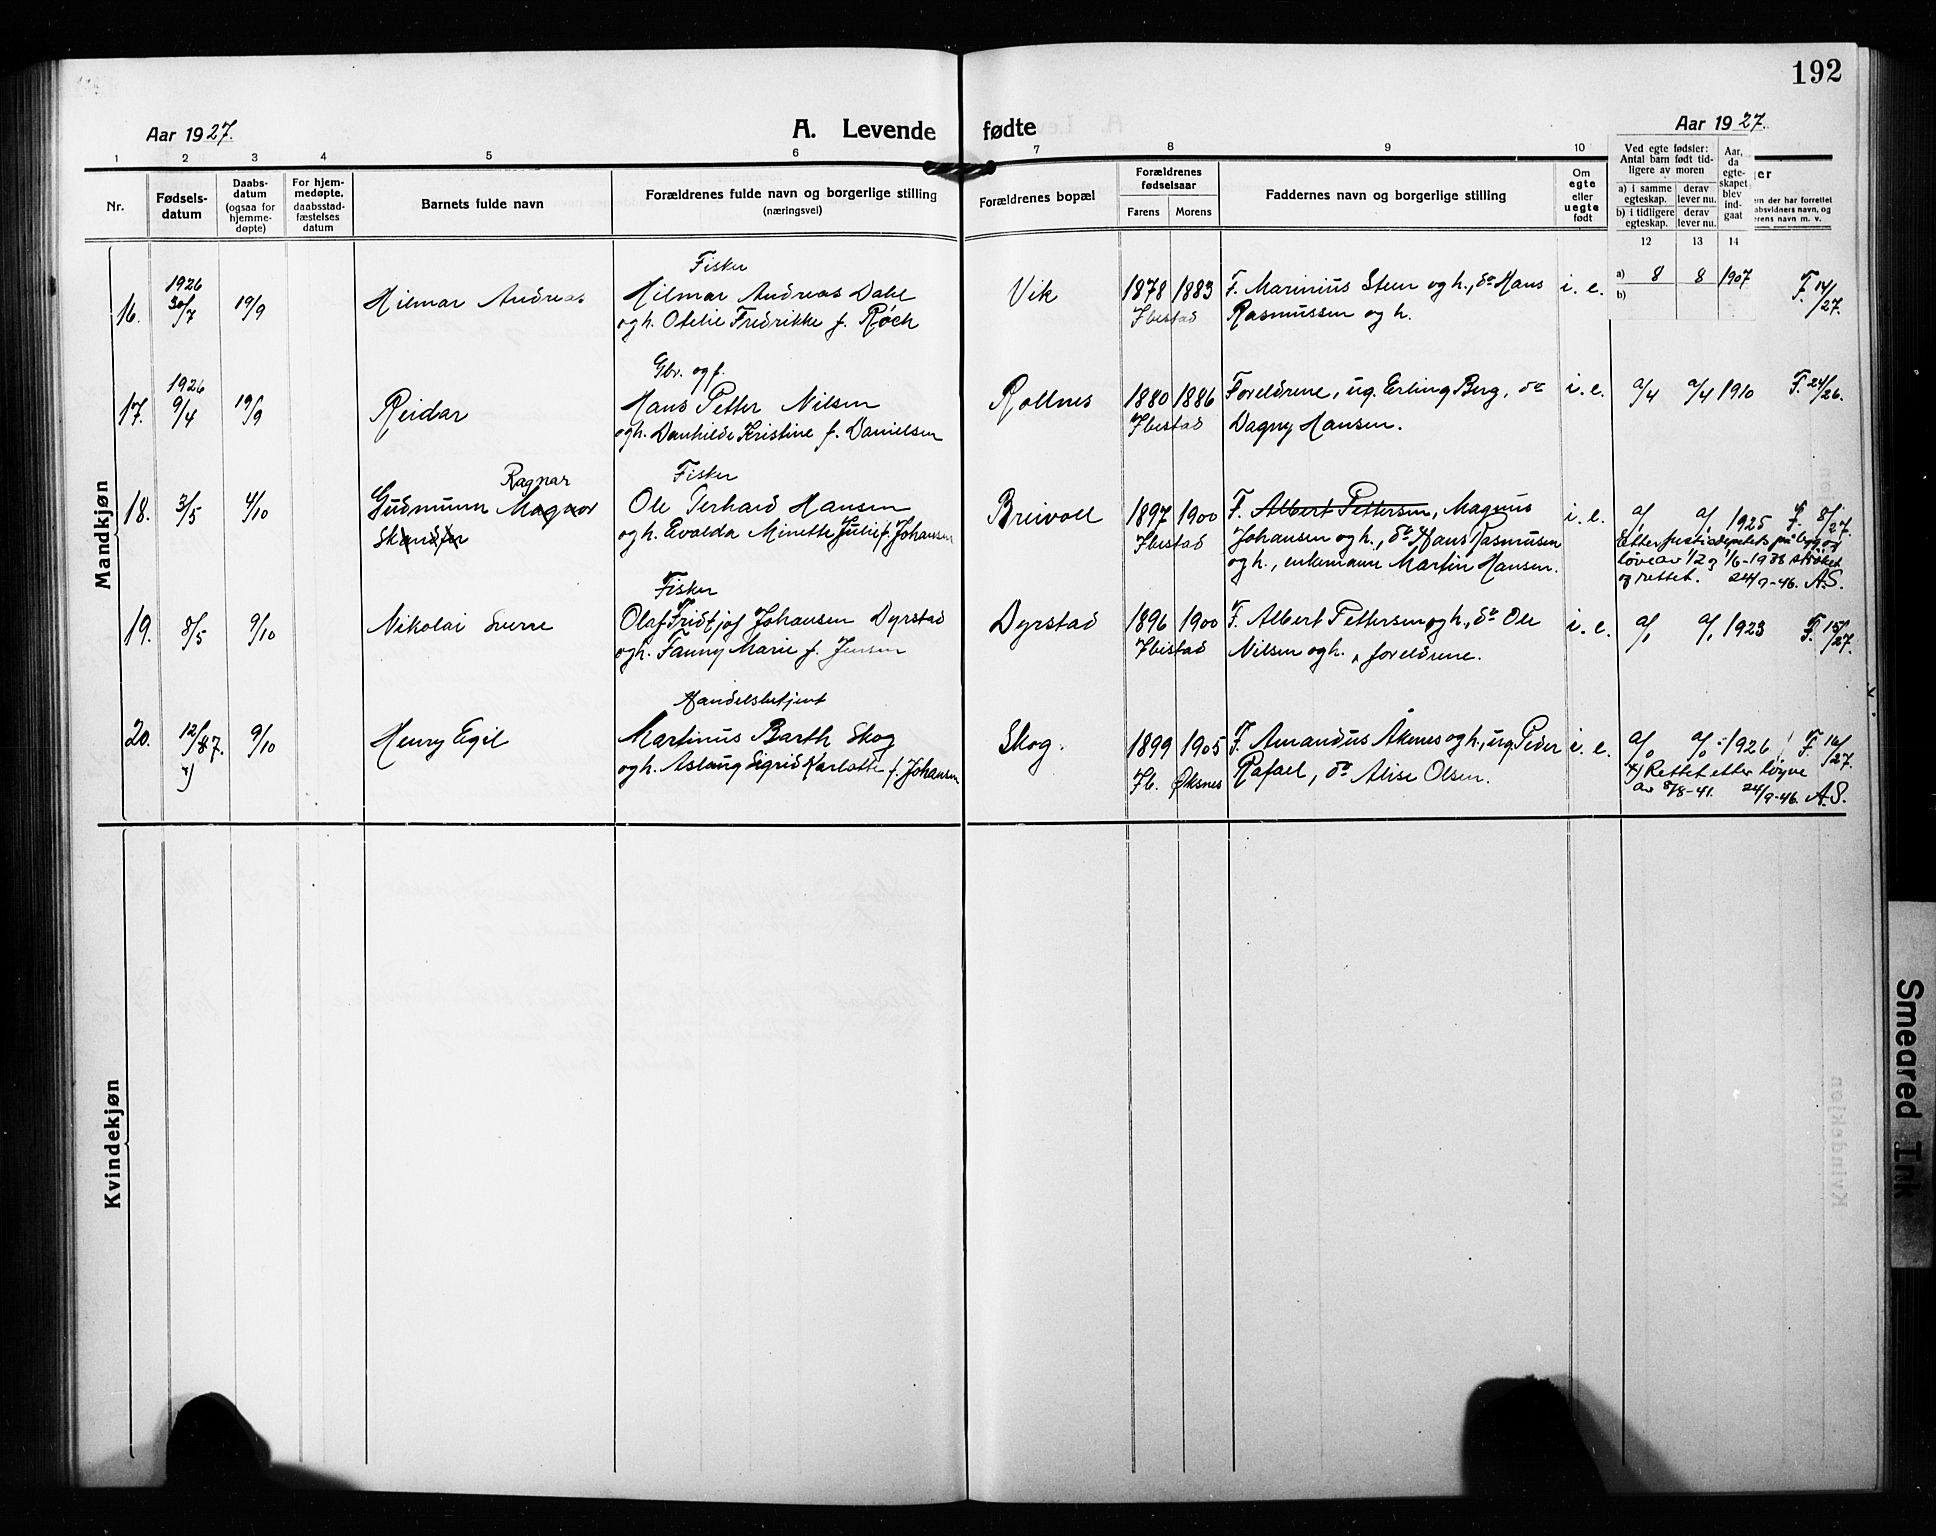 192
Aar 1927.
A. Levende fødte
Aar 1927.
1 2 3 4 5 6 7 8 9 10
Nr.
Fødsels-
datum
Daabs-
datum
(ogsaa for
hjemme-
døpte)
For hjem-
medøpte,
daabsstad-
fæstelses
datum
Barnets fulde navn
Forældrenes fulde navn og borgerlige stilling
(næringsvei)
Forældrenes bopæl
Forældrenes
fødselsaar
Farens Morens
Faddernes navn og borgerlige stilling
Om
egte
eller
uegte
født
Ved egte fødsler:
Antal barn født tid-
ligere av moren
a) i samme
egteskap.
derav
lever nu.
b) i tidligere
egteskap.
derav
lever nu.
Aar,
da
egte-
skapet
blev
ind-
gaat
12 13 14
ger
en der har forrettet
absvidners navn, og
erens navn m. v.
Mandkjøn
16.
1926
30/7
19/9
Hilmar Andreas
Fisker
Hilmar Andreas Dahl
og h. Otelie Fredrikke f. Røch
Vik
1878 1883
Ibestad
F. Marinius Steen og h., do Hans
Rasmussen og h.
i. e.
a) 8 8 1907
b)
F. 14/27.
17.
1926
9/4
19/9
Reidar
Gbr. og f.
Hans Petter Nilsen
og h. Danhilde Kristine f. Danielsen
Rollnes
1880 1886
Ibestad
Foreldrene, ug. Erling Berg, do
Dagny Hansen.
i. e.
a/4 a/4 1910
F. 24/26.
18.
3/5
4/10
Ragnar
Gudmunn Magnor
Skandfer
Fisker
Ole Gerhard Hansen
og h. Evalda Minette Julie f. Johansen
Breivoll
1897 1900
Ibestad
F. Albert Pettersen, Magnus
Johansen og h., do Hans Rasmussen
og h., enkemann Martin Hansen.
i. e.
a/1 a/1 1925 F. 8/27.
Etter
og rettet. 24/9-46. A.S.
19.
8/5
9/10
Nikolai Sverre
Fisker
Olaf Fridtjof Johansen Dyrstad
og h. Fanny Marie f. Jensen
Dyrstad
1896 1900
Ibestad
F. Albert Pettersen og h., do Ole
Nilsen og h., foreldrene.
i. e.
a/1 a/1 1923
F. 15/27.
20.
12/87.
x)
9/10
Henry Egil
Handelsbetjent
Martinus Barth Skog
og h. Aslaug Sigrid Karlotte f. Johansen
Skog.
1899 1905
Ib. Øksnes
F. Amandus Åkenes og h., ug. Peder
Rafael, do Alise Olsen.
i. e.
a/0 a/0 1926 F. 16/27.
x) Rettet etter løyve
av 8/8-41. 24/9-46. A.S.
Kvindekjøn
Smeared Ink